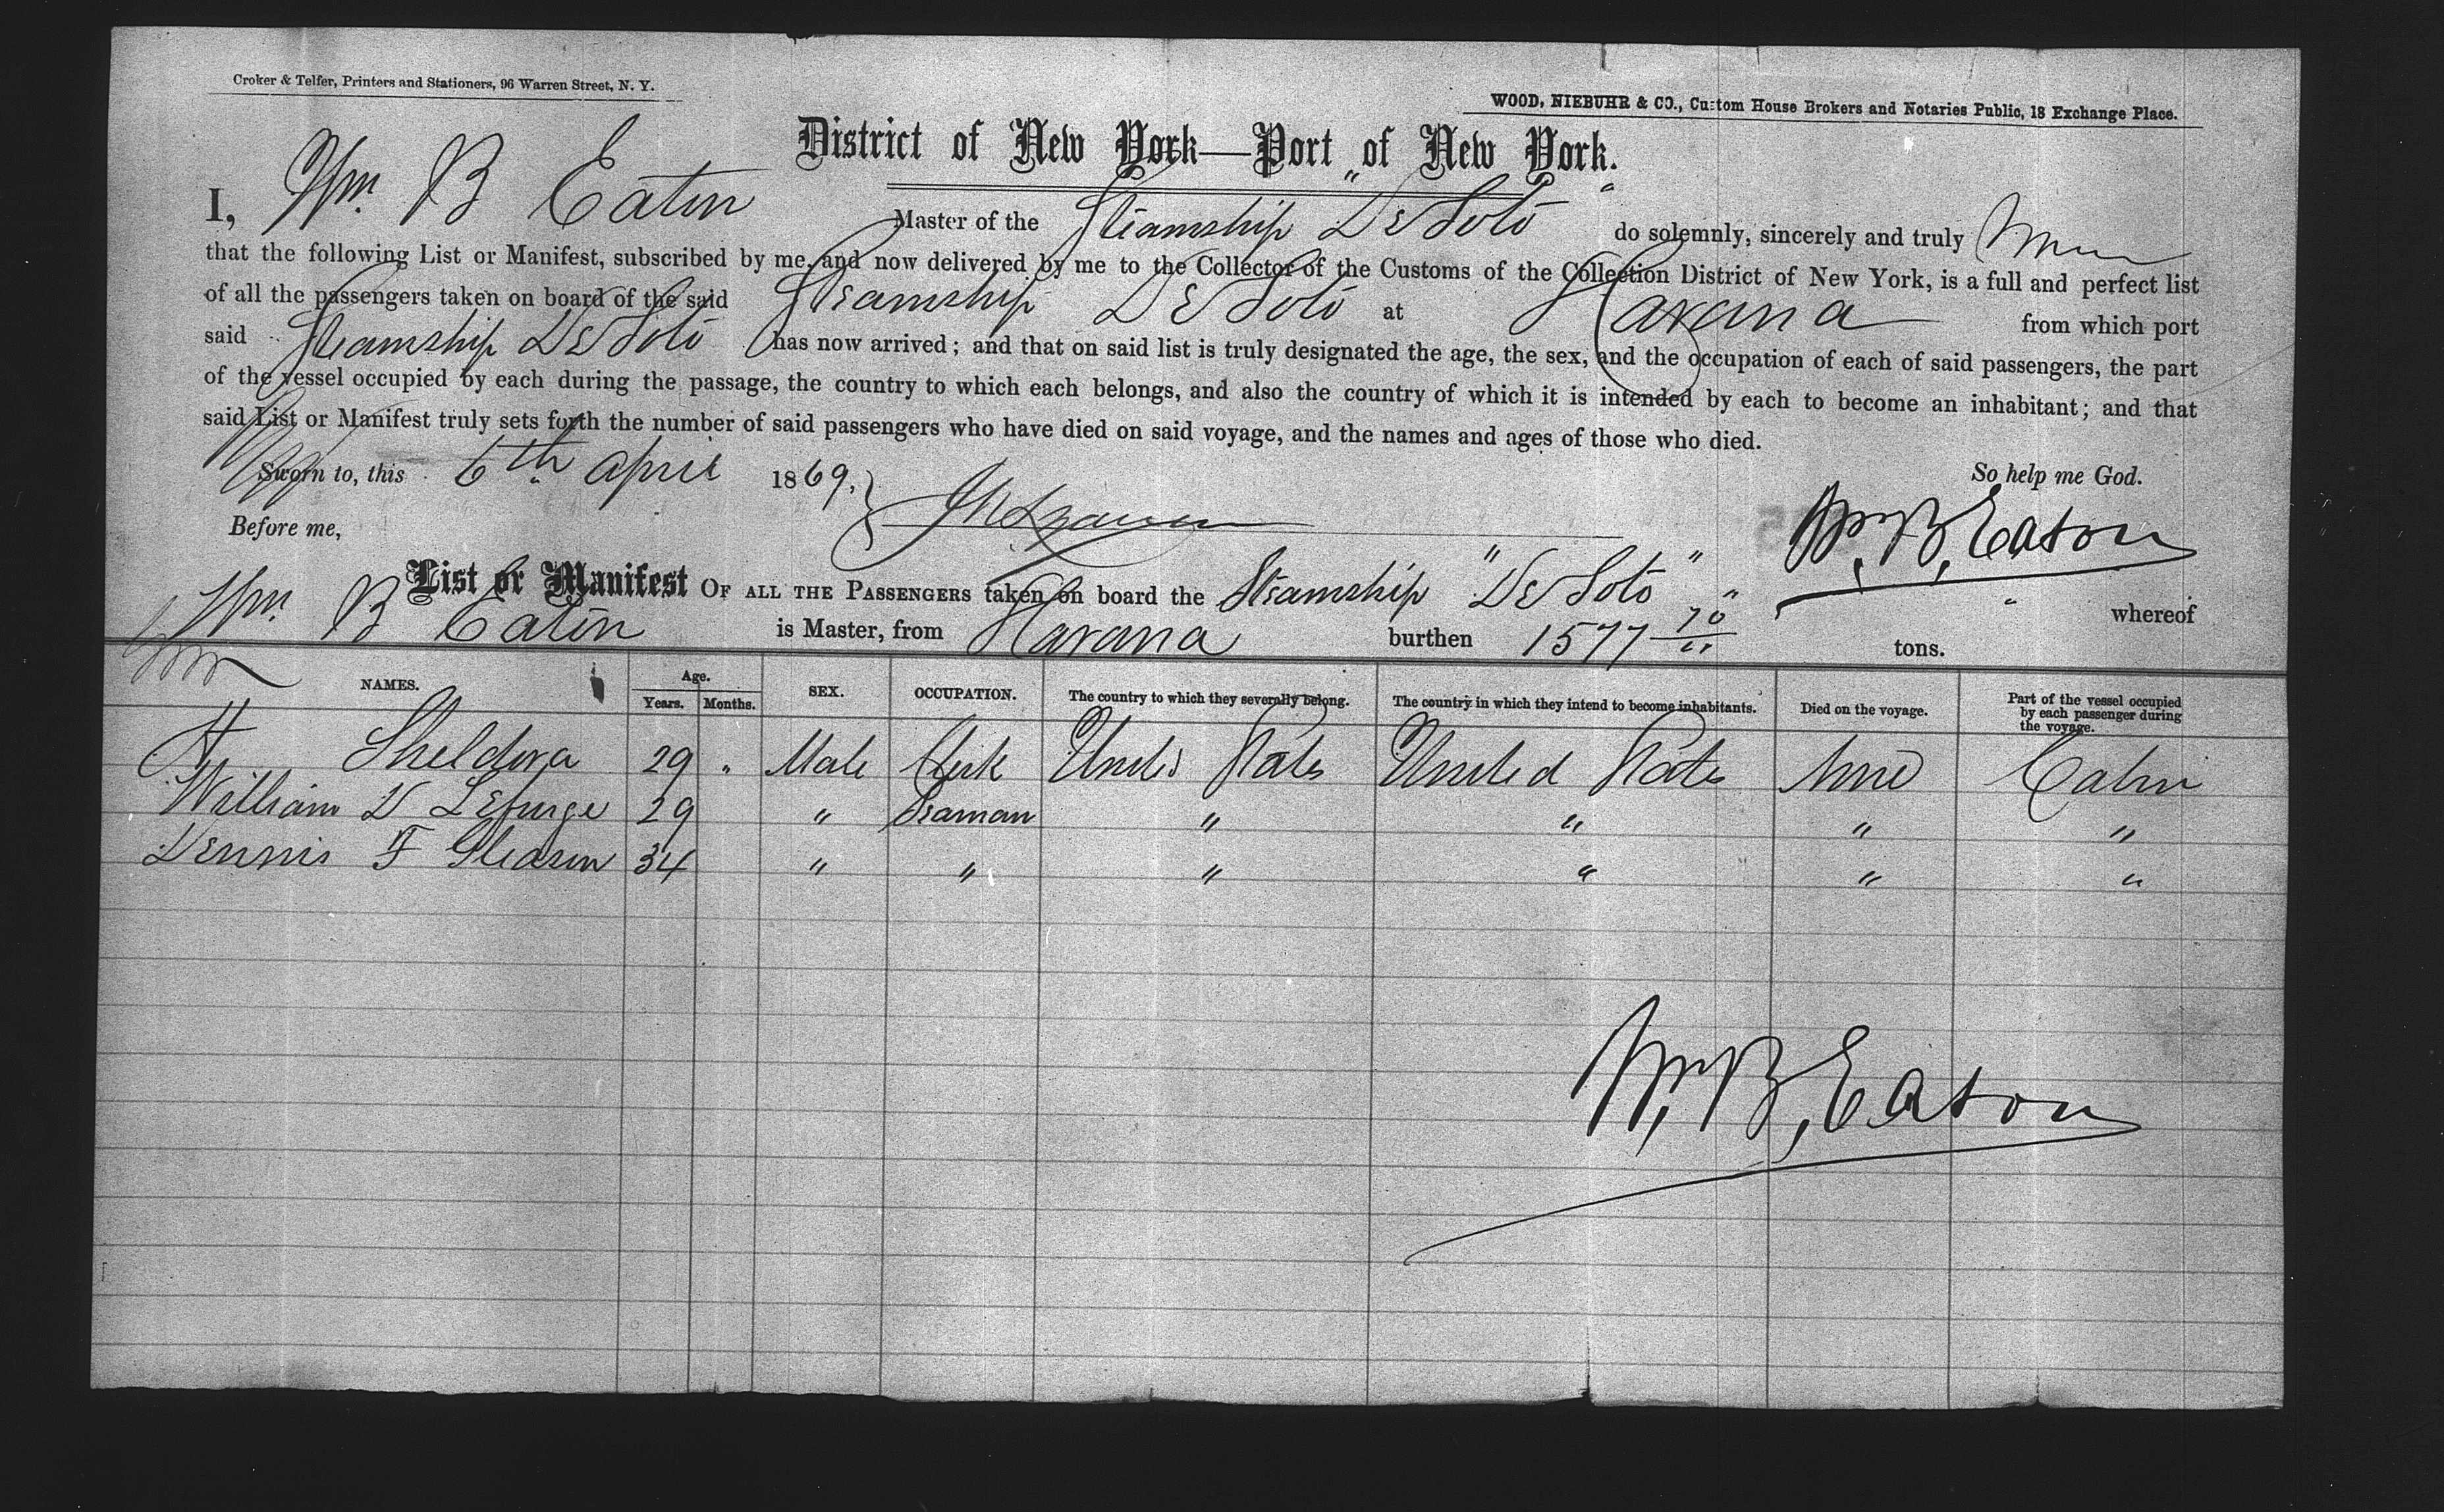 Croker & Telfer, Printers and Stationers, 96 Warren Street, N. Y.
WOOD, NIEBUHR & CO., Custom House Brokers and Notaries Public, 18 Exchange Place.
District of New York—Port of New York.
I, Wm. B Eaton Master of the Steamship "De Soto" do solemnly, sincerely and truly
that the following List or Manifest, subscribed by me, and now delivered by me to the Collector of the Customs of the Collection District of New York, is a full and perfect list
of all the passengers taken on board of the said Steamship De Soto at Havana from which port
said Steamship De Soto has now arrived; and that on said list is truly designated the age, the sex, and the occupation of each of said passengers, the part
of the vessel occupied by each during the passage, the country to which each belongs, and also the country of which it is intended by each to become an inhabitant; and that
said List or Manifest truly sets forth the number of said passengers who have died on said voyage, and the names and ages of those who died.
Sworn to, this 6th April 1869,
So help me God.
Before me,
Wm. B. Eaton
List or Manifest OF ALL THE PASSENGERS taken on board the Steamship "De Soto" whereof
Wm. B Eaton is Master, from Havana burthen 1577 70/" tons.
NAMES. Age. Years. Months. SEX. OCCUPATION. The country to which they severally belong. The country in which they intend to become inhabitants. Died on the voyage. Part of the vessel occupied by each passenger during the voyage.
H Sheldon 29 " Male Clerk United States United States None Cabin
William D Lefurge 29 " Seaman " " " "
Dennis F Gleason 34 " " " " " "
W. B. Eaton